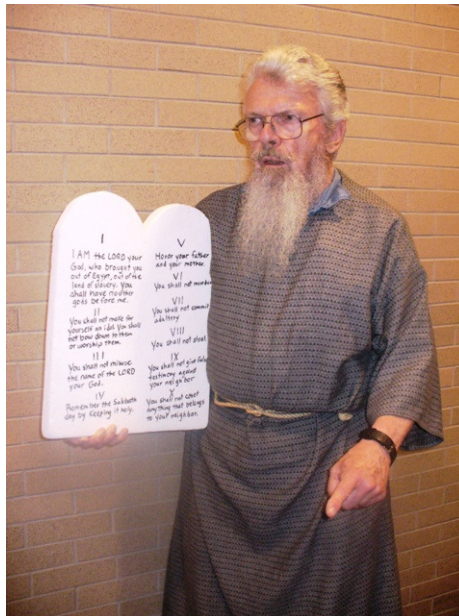 I
I AM the LORD your
God, who brought you
out of Egypt, out of the
land of slavery. You
shall have no other
gods before me.
II
You shall not make for
yourself an idol. You shall
not bow down to them
or worship them.
III
You shall not misuse
the name of the LORD
your God.
IV
Remember the Sabbath
day by keeping it holy.
V
Honor your father
and your mother.
VI
You shall not murder
VII
You shall not commit
adultery
VIII
You shall not steal.
IX
You shall not give false
testimony against
your neighbor
X
You shall not covet
anything that belongs
to your neighbor.